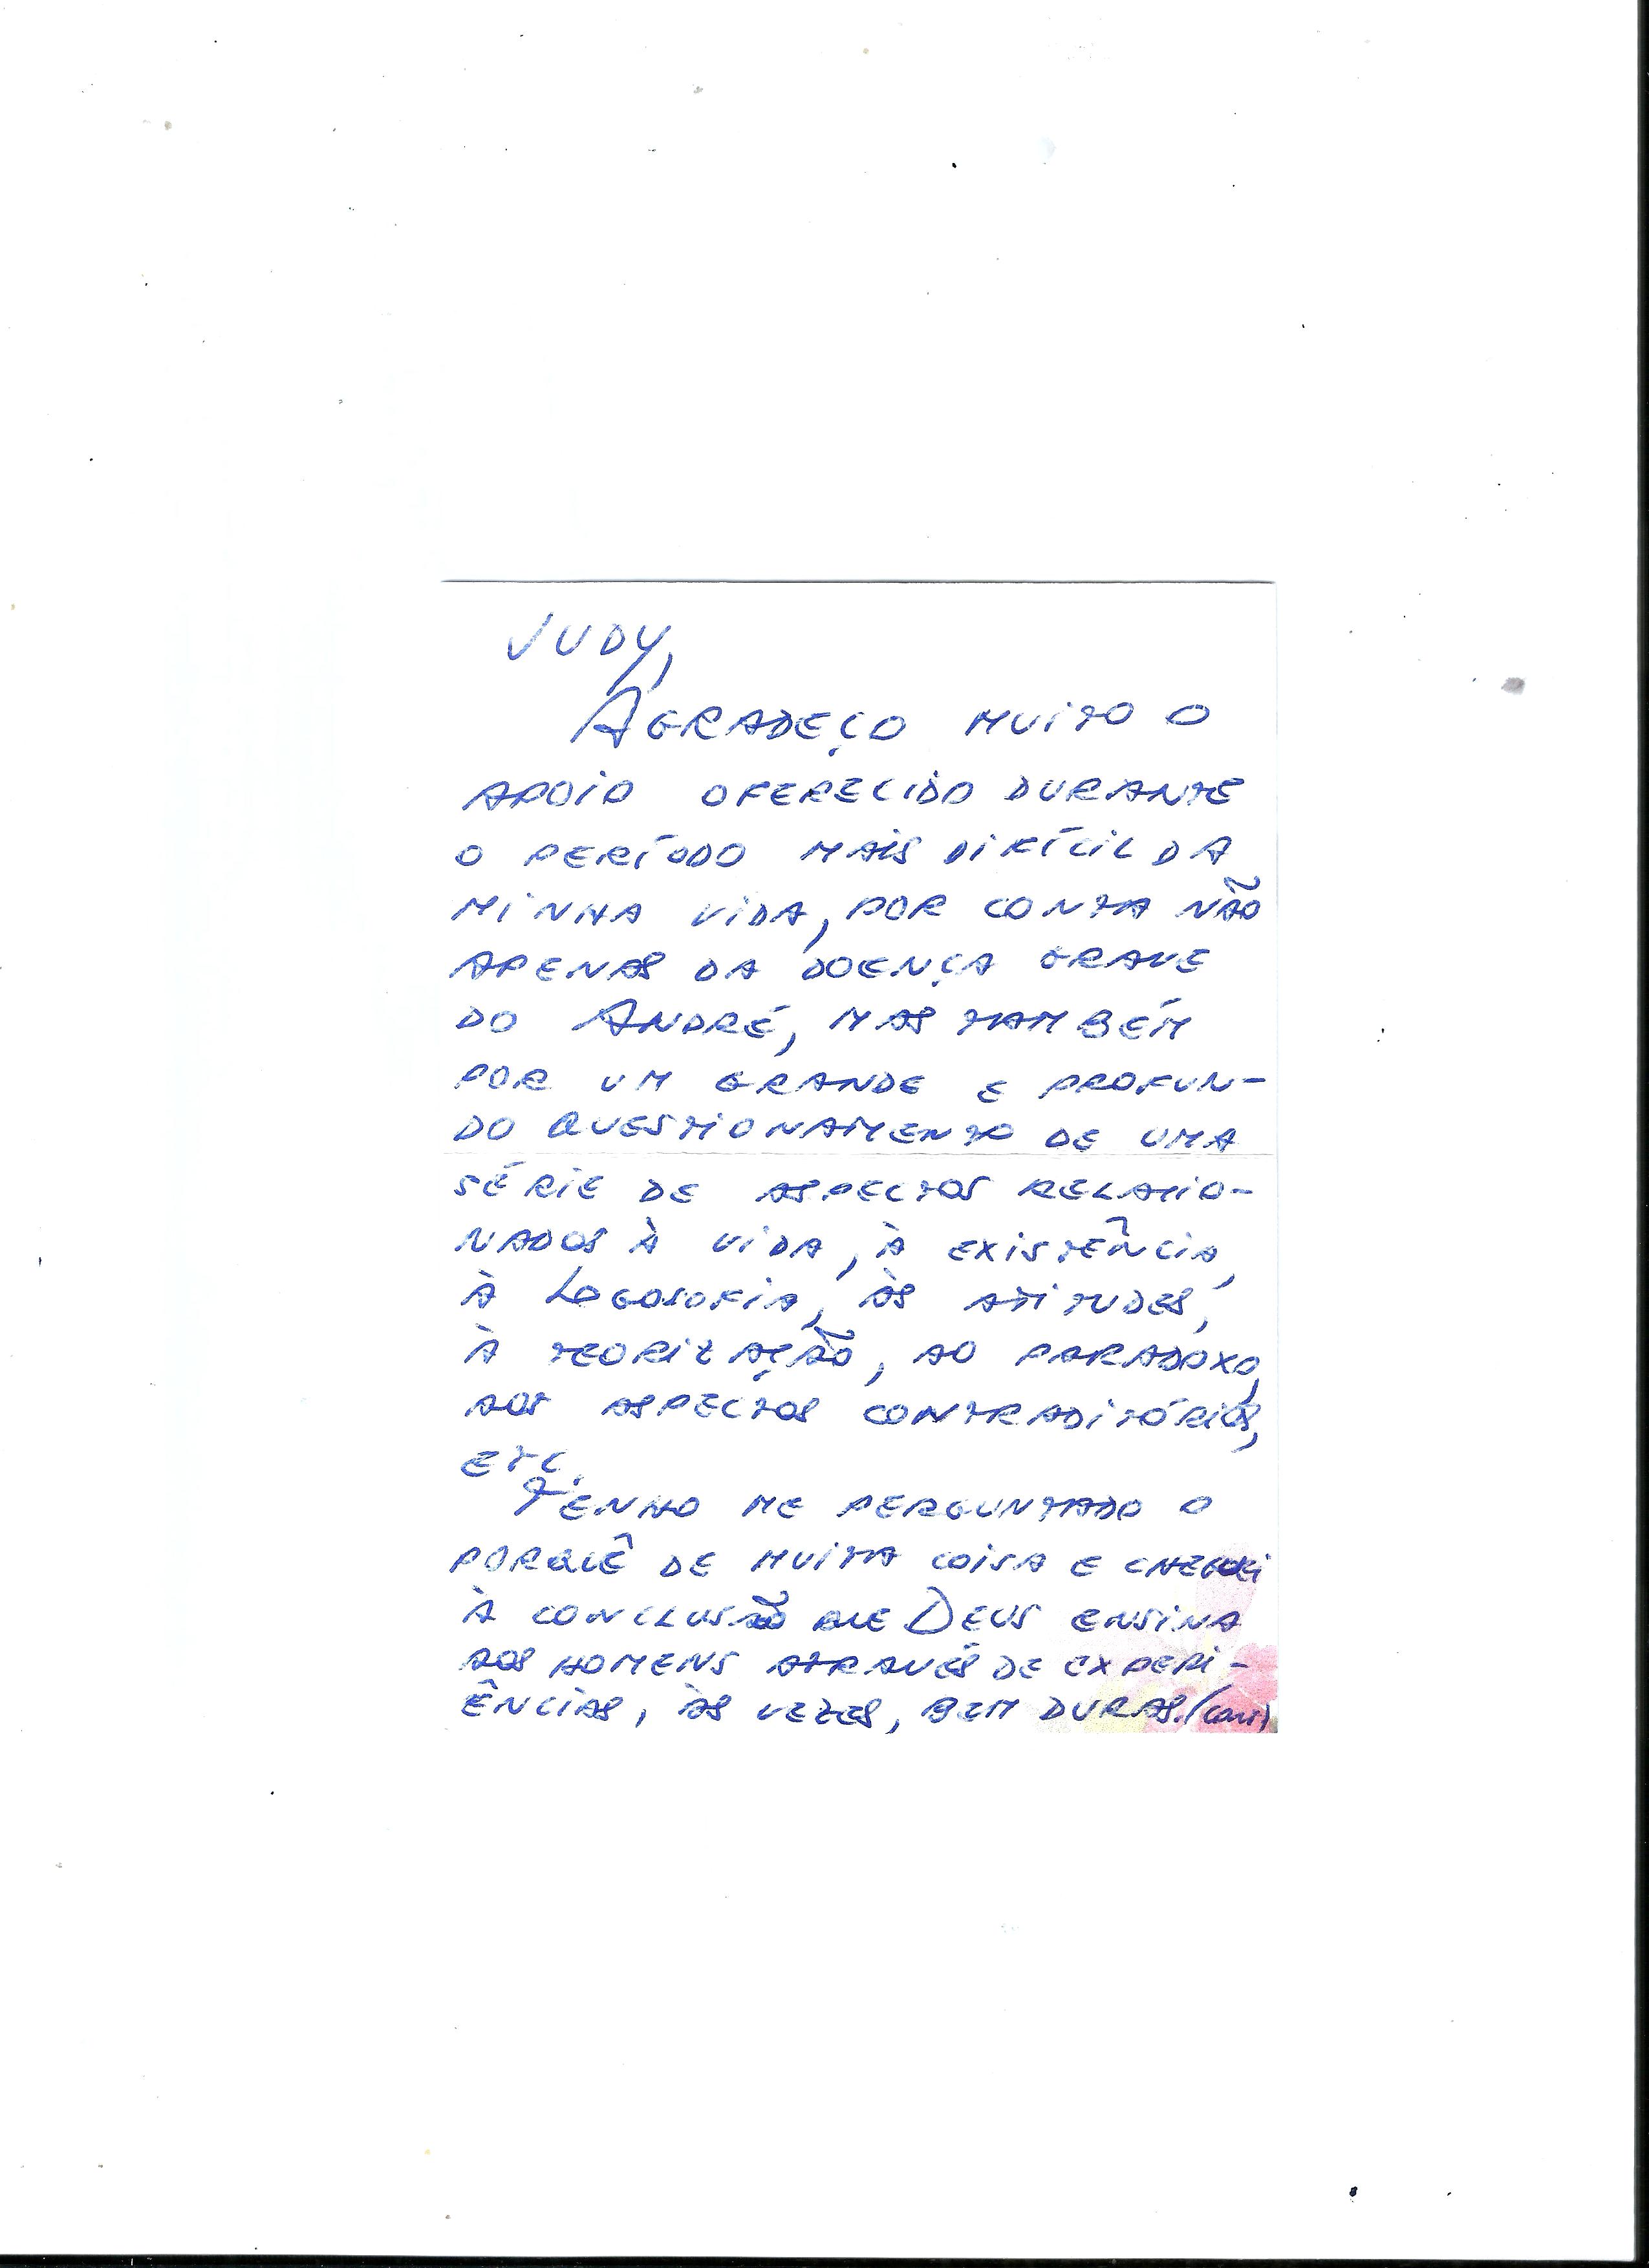 JUDY,
AGRADEÇO MUITO O
APOIO OFERECIDO DURANTE
O PERÍODO MAIS DIFÍCIL DA
MINHA VIDA, POR CONTA NÃO
APENAS DA DOENÇA GRAVE
DO ANDRÉ, MAS TAMBÉM
POR UM GRANDE E PROFUN-
DO QUESTIONAMENTO DE UMA
SÉRIE DE ASPECTOS RELACIO-
NADOS À VIDA, À EXISTÊNCIA,
À LOGOSOFIA, ÀS ATITUDES,
À TEORIZAÇÃO, AO PARADOXO,
AOS ASPECTOS CONTRADITÓRIOS,
ETC.
TENHO ME PERGUNTADO O
PORQUÊ DE MUITA COISA E CHEGUEI
À CONCLUSÃO QUE DEUS ENSINA
AOS HOMENS ATRAVÉS DE EXPERI-
ÊNCIAS, ÀS VEZES, BEM DURAS. (cont)